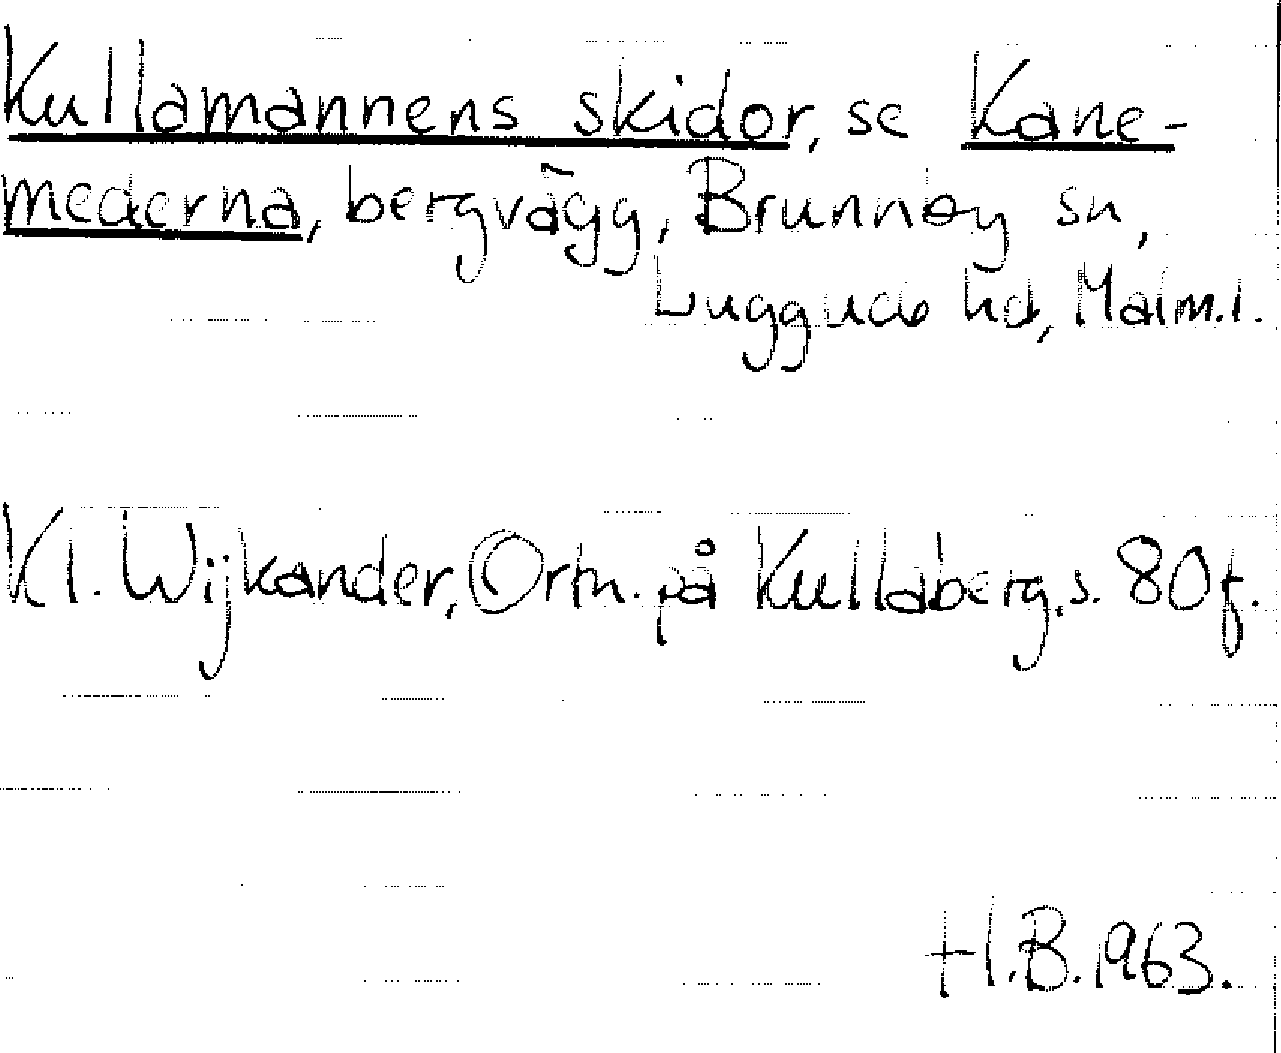 Kullamannens skidor, se Kane-
mederna, bergvägg, Brunnby sn,
Luggude hd, Malm.l.
Kl. Wijkander, Ortn. på Kullaberg, s. 80 f.
H.B. 1963.